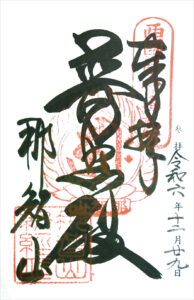 参拝 令和六年十二月廿九日
奉拝
普照殿
那智山